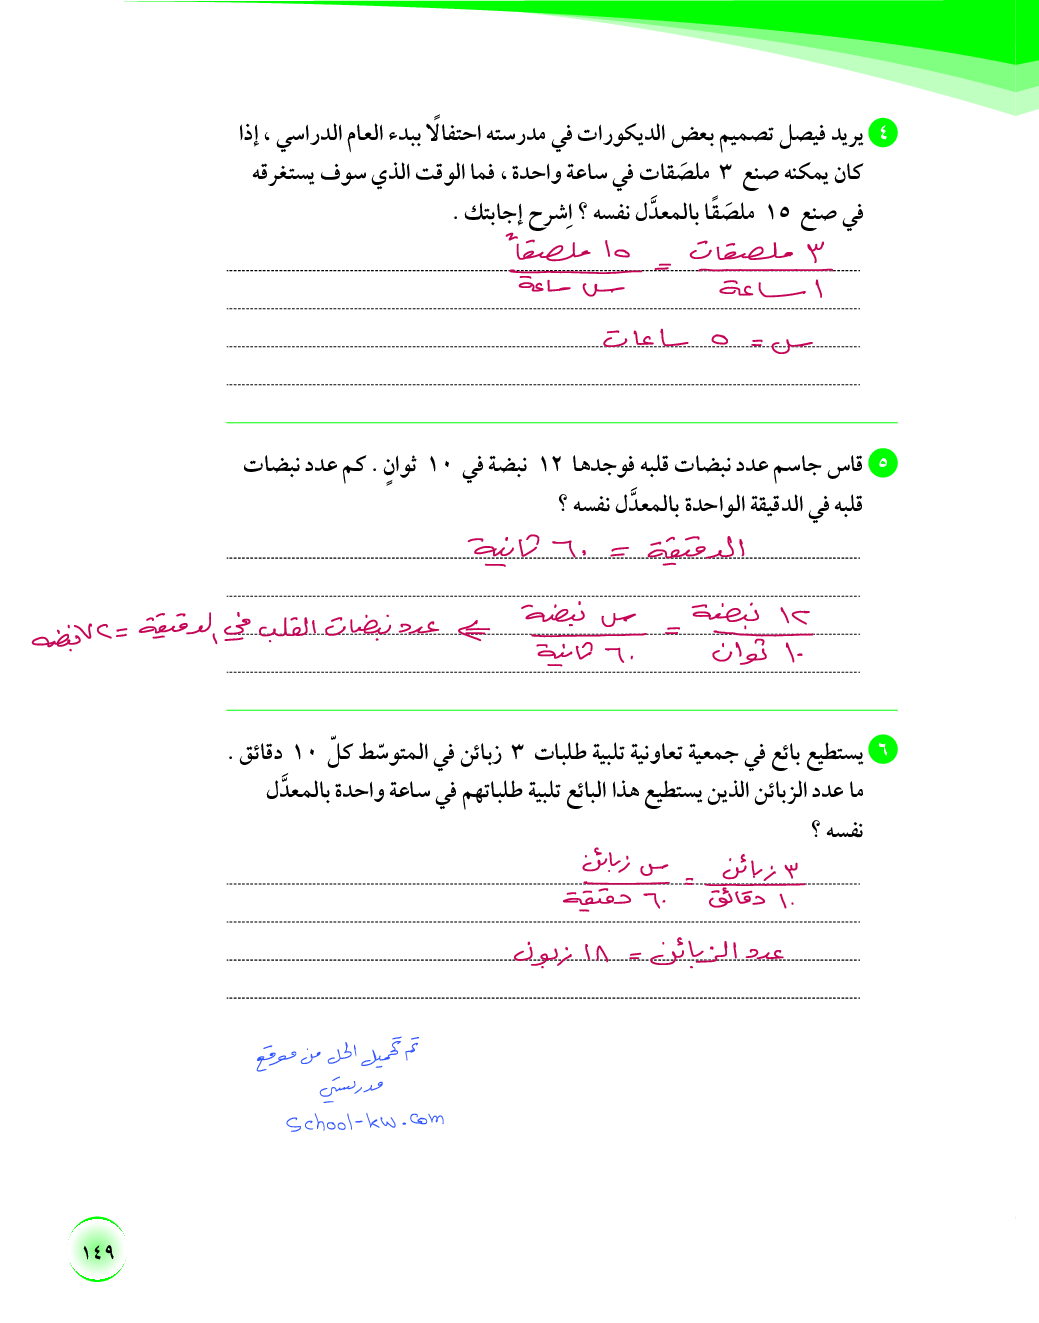 ٤ يريد فيصل تصميم بعض الديكورات في مدرسته احتفالًا ببدء العام الدراسي ، إذا
كان يمكنه صنع ٣ ملصَقات في ساعة واحدة ، فما الوقت الذي سوف يستغرقه
في صنع ١٥ ملصَقًا بالمعدَّل نفسه ؟ اِشرح إجابتك .
٣ ملصقات = ١٥ ملصقاً
١ ساعة س ساعة
س = ٥ ساعات
٥ قاس جاسم عدد نبضات قلبه فوجدها ١٢ نبضة في ١٠ ثوانٍ . كم عدد نبضات
قلبه في الدقيقة الواحدة بالمعدَّل نفسه ؟
الدقيقة = ٦٠ ثانية
١٢ نبضة = س نبضة ⇐ عدد نبضات القلب في الدقيقة = ٧٢ نبضه
١٠ ثوان ٦٠ ثانية
٦ يستطيع بائع في جمعية تعاونية تلبية طلبات ٣ زبائن في المتوسّط كلّ ١٠ دقائق .
ما عدد الزبائن الذين يستطيع هذا البائع تلبية طلباتهم في ساعة واحدة بالمعدَّل
نفسه ؟
٣ زبائن = س زبائن
١٠ دقائق ٦٠ دقيقة
عدد الزبائن = ١٨ زبون
تم تحميل الحل من موقع
مدرستي
school-kw.com
١٤٩